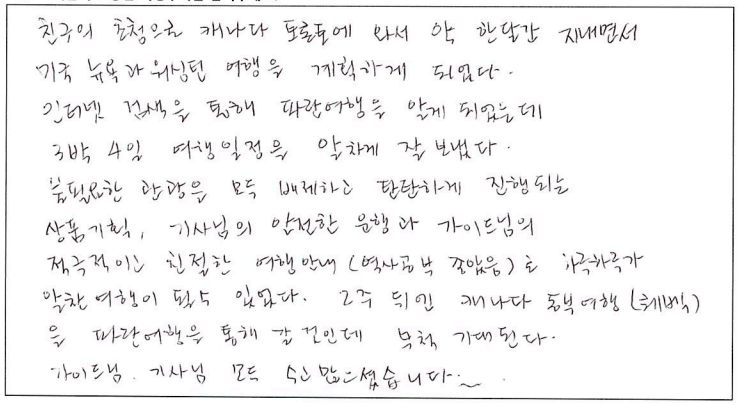 친구의 초청으로 캐나다 토론토에 와서 약 한달간 지내면서
미국 뉴욕과 워싱턴 여행을 계획하게 되었다.
인터넷 검색을 통해 파란여행을 알게 되었는데
3박 4일 여행일정을 알차게 잘 보냈다.
불필요한 관광을 모두 배제하고 탄탄하게 진행되는
상품기획, 기사님의 안전한 운행과 가이드님의
적극적이고 친절한 여행안내 (역사공부 쪼았음)로 하루하루가
알찬여행이 될수 있었다. 2주 뒤인 캐나다 동부여행 (퀘벡)
을 파란여행을 통해 갈 것인데 무척 기대된다.
가이드님. 기사님 모두 수고 많으셨습니다~.